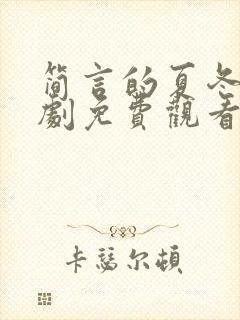 简言的夏冬
劇免費觀看
卡瑟尔頓